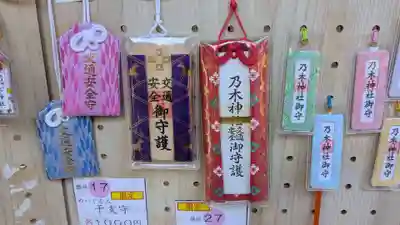 交通安全守
交通安全守
交通
安全
御守護
乃木神社
御守護
乃木神社御守
乃木神社御守
乃木神社御守
乃木神社御守
17
干支守
1000円
27